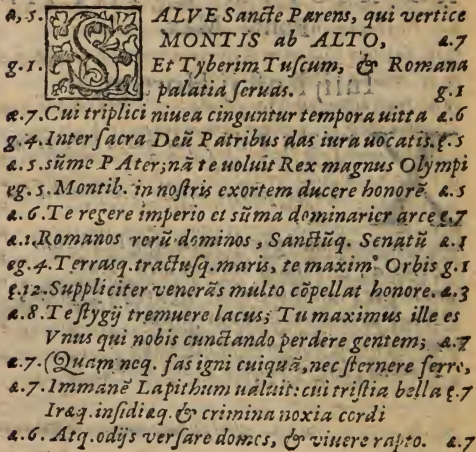 a,5. SALVE Sancte Parens, qui vertice
MONTIS ab ALTO, a.7
g.1. Et Tyberim Tuscum, & Romana
palatia seruas. g.1
a.7. Cui triplici niuea cinguntur tempora uitta a.6
g.4. Inter sacra Deũ Patribus das iura uocatis. g.5
a.5. sũme PAter; nã te uoluit Rex magnus Olympi
eg.5. Montib. in nostris exortem ducere honorẽ. a.5
a.6. Te regere imperio et sũma dominarier arce ę.7
a.1. Romanos rerũ dominos, Sanctũq. Senatũ a.1
eg.4. Terrasq. tractusq. maris, te maximꝰ Orbis g.1
ę.12. Suppliciter venerãs multo cõpellat honore. a.3
a.8. Te stygij tremuere lacus; Tu maximus ille es
Vnus qui nobis cunctando perdere gentem; a.7
a.7. (Quam neq. fas igni cuiquã, nec sternere ferro,
a.7. Immanẽ Lapithum ualuit: cui tristia bella ę.7
Iræq. insidiæq. & crimina noxia cordi
a.6. Atq. odijs versare domos, & viuere rapto. a.7